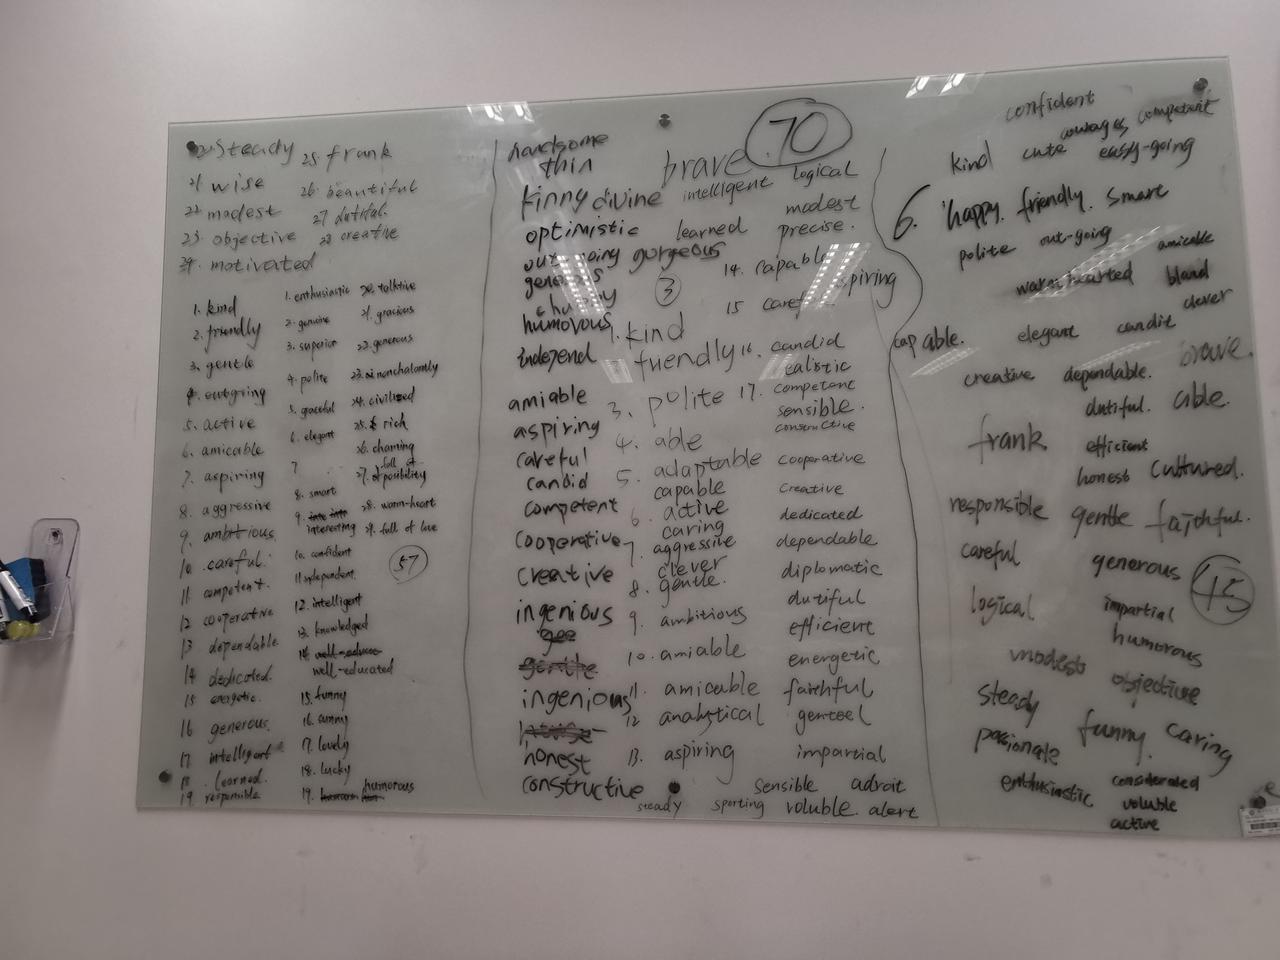 20. steady 25 frank
21 wise 26. beautiful
22 modest 27 dutiful.
23. objective 28 creative
24. motivated
1. kind
2. friendly
3. gentle
4. outgoing
5. active
6. amicable
7. aspiring
8 aggressive
9. ambitious
10. careful.
11 competent.
12 cooperative
13 dependable
14 dedicated.
15 energetic.
16 generous.
17 intelligent
18. learned.
19. responsible
1. enthusiastic
2. genuine
3. superior
4. polite
5. graceful
6. elegant
7
8. smart
9. interesting
10. confident
11. independent.
12. intelligent
13. knowledged
14. well-educated
15. funny
16. cunny
17. lovely
18. lucky
19. humorous
20. talktive
21. gracious
22. generous
23. nonchalantly
24. civilized
25. rich
26. charming
27. full of posibility
28. warm-heart
29. full of love
57
handsome
thin
kinny divine
optimistic
out going gorgeous
generous
chubby
humovous
independ
amiable
aspiring
careful
candid
competent
cooperative
creative
ingenious
ingenious
honest
constructive
brave 70
intelligent logical
learned modest
precise.
3
1. kind
friendly
3. polite
4. able
5. adaptable
capable
6 active
caring
7. aggressive
clever
8. gentle.
9. ambitious
10. amiable
11. amicable
12 analytical
13. aspiring
14. capable
aspiring
15 careful
16. candid
ealistic
17. competent
sensible.
constructive
cooperative
creative
dedicated
dependable
diplomatic
dutiful
efficient
energetic
faithful
genteel
impartial
sensible adroit
steady sporting voluble. alert
confident
courages competent
kind cute easly-going
6. happy. friendly. smart
polite out-going amicable
warm hearted bland
clever
capable. elegant candit
creative dependable. brave.
dutiful. able.
frank efficient
honest cultured.
responsible gentle faithful.
careful generous 45
logical impartial
humorous
modest objective
steady
passionate funny. caring
enthusiastic considerated
voluble
active